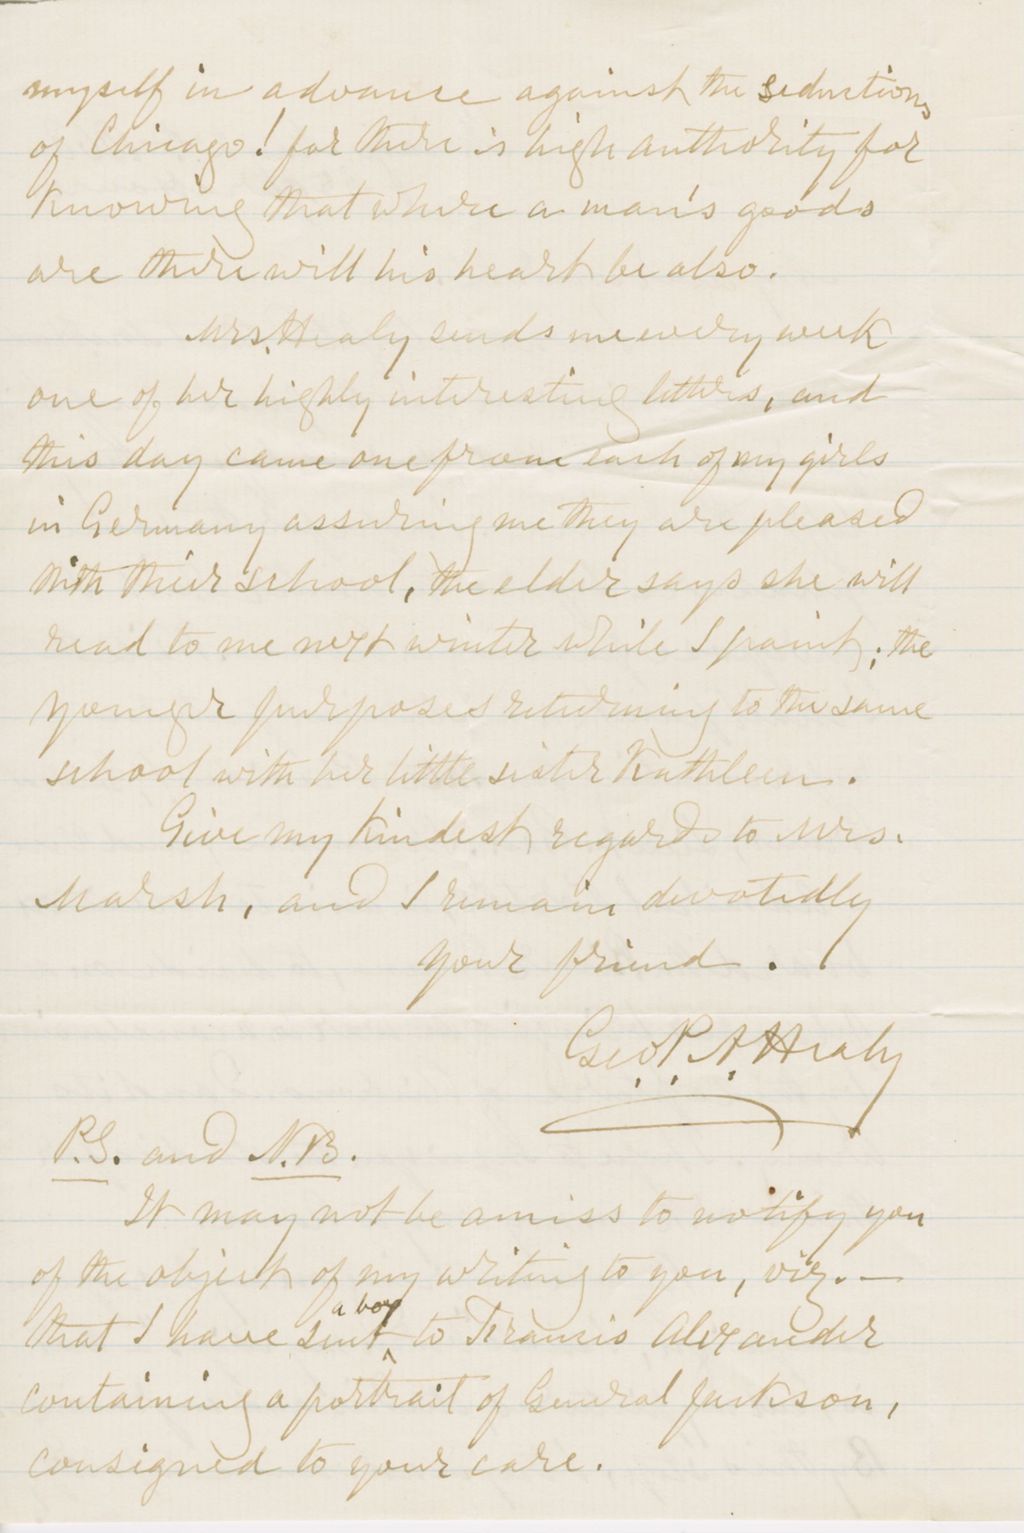 myself in advance against the seductions
of Chicago! for there is high authority for
knowing that where a man's goods
are there will his heart be also.
Mrs. Healy sends me every week
one of her highly interesting letters, and
this day came one from each of my girls
in Germany assuring me they are pleased
with their school, the elder says she will
read to me next winter while I paint; the
younger purposes returning to the same
school with her little sister Kathleen.
Give my kindest regards to Mrs.
Marsh, and I remain devotedly
your friend.
Geo. P. A. Healy
P.S. and N.B.
It may not be amiss to notify you
of the object of my writing to you, viz. —
a box
that I have sent ^ to Francis Alexander
containing a portrait of General Jackson,
consigned to your care.